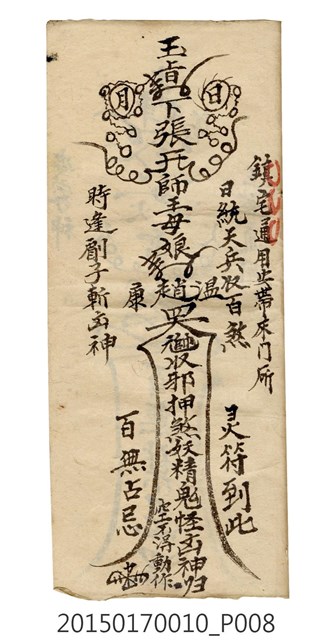 鎮宅通用出帶來門所
日
日統天兵收百煞
灵符到此
玉旨下張天師王母娘
溫
趙
康
收邪押煞妖精鬼怪凶神归
不得動作
月
時逢劊子斬凶神
百無占忌
20150170010_P008